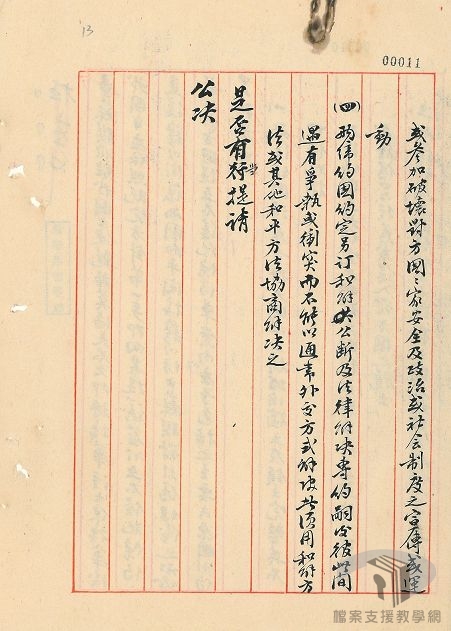 13
00011
或參加破壞對方國々家安全及政治或社會制度之宣傳或運
動
(四)兩締約國約定另訂和解公斷及法律解決專約嗣後彼此間
遇有爭執或衝突而不能以通常外交方式解決其須用和解方
法或其他和平方法協商解決之
是否有當行提請
公決
檔案支援教學網